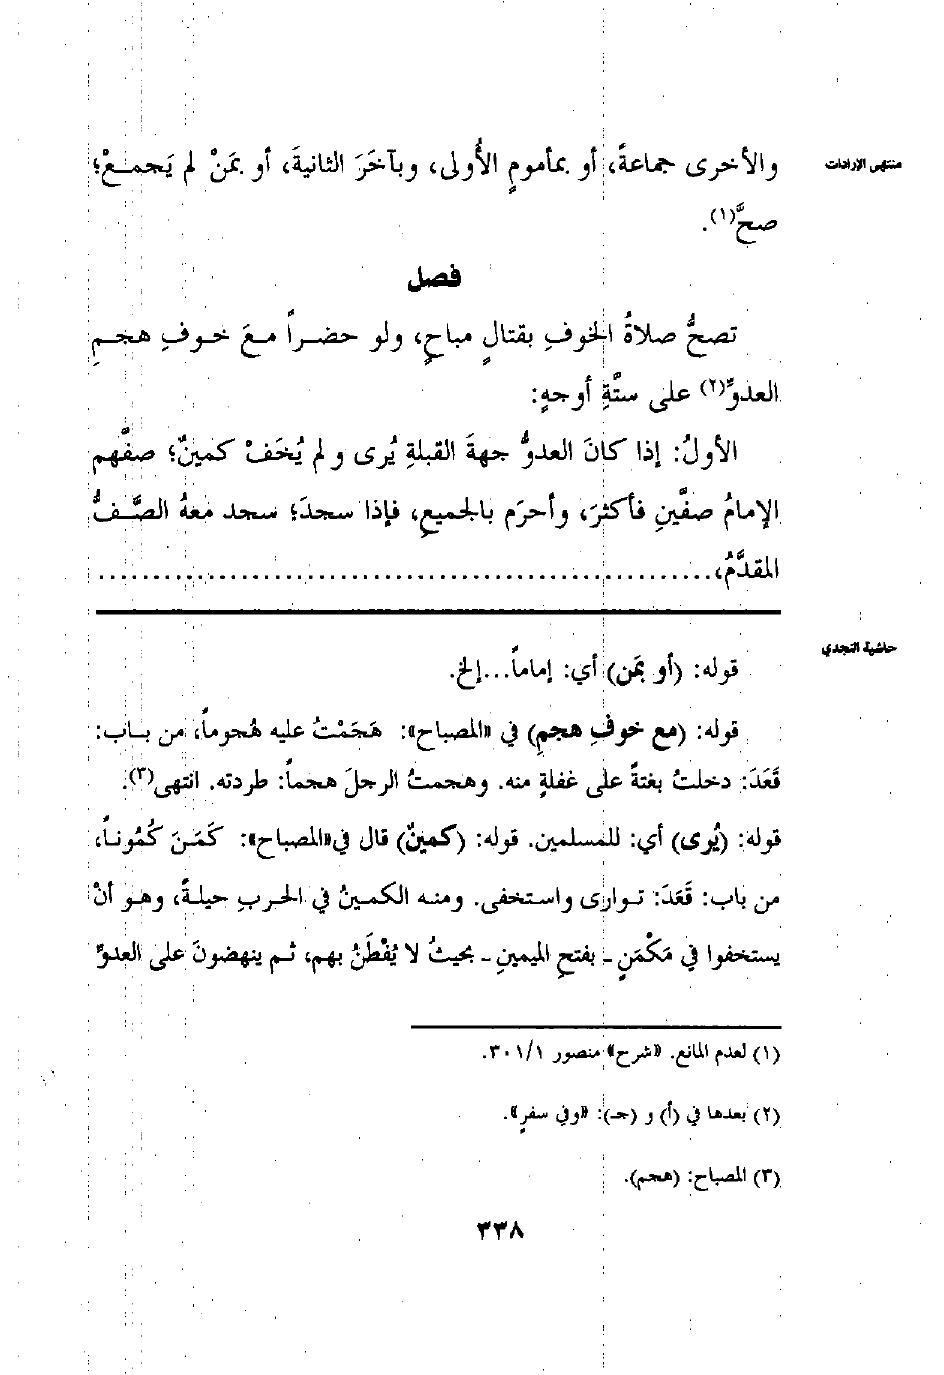 منتهى الإرادات
والأخرى جماعةً، أو بمأمومٍ الأُولى، وبآخَرَ الثانيةَ، أو بمَنْ لم يَجمعْ؛
صحَّ(١).
فصل
تصحُّ صلاةُ الخوفِ بقتالٍ مباحٍ، ولو حضراً معَ خوفِ هجمِ
العدوِّ(٢) على ستَّةِ أوجهٍ:
الأولُ: إذا كانَ العدوُّ جهةَ القبلةِ يُرى و لم يُخَفْ كمينٌ؛ صفَّهم
الإمامُ صفَّينِ فأكثرَ، وأحرَم بالجميعِ، فإذا سجدَ؛ سجد معَهُ الصَّفُّ
المقدَّمُ، ........................................................
حاشية النجدي
قوله: (أو بمَن) أي: إماماً...إلخ.
قوله: (مع خوفِ هجمِ) في «المصباح»: هَجَمْتُ عليه هُجوماً، من باب:
قَعَدَ: دخلتُ بغتةً على غفلةٍ منه. وهجمتُ الرجلَ هجماً: طردته. انتهى(٣).
قوله: (يُرى) أي: للمسلمين. قوله: (كمينٌ) قال في«المصباح»: كَمَنَ كُمُوناً،
من باب: قَعَدَ: توارى واستخفى. ومنه الكمينُ في الحربِ حيلةً، وهو أنْ
يستخفوا في مَكْمَنٍ ـ بفتحِ الميمينِ ـ بحيثُ لا يُفْطَنُ بهم، ثم ينهضونَ على العدوِّ
(١) لعدم المانع. «شرح» منصور ٣٠١/١.
(٢) بعدها في (أ) و (جـ): «وفي سفرٍ».
(٣) المصباح: (هجم).
٣٣٨